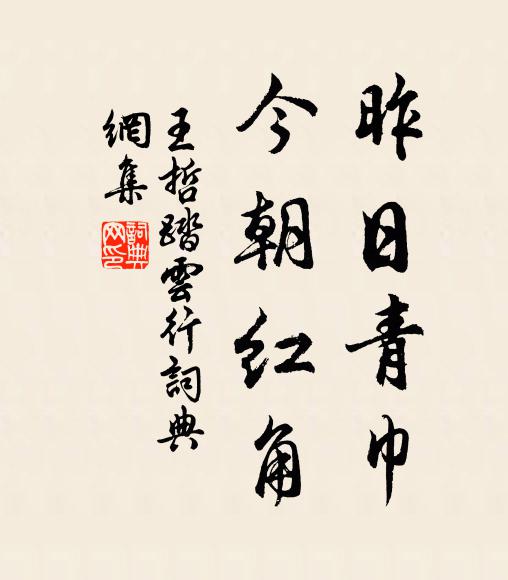 昨日青巾
今朝红角
王哲踏雲行詞典
網集
詞典
网印